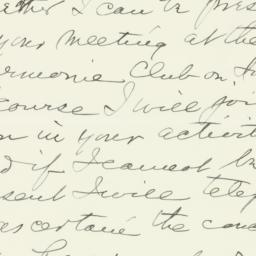 I can be pres
your meeting at the
armonie Club on
course I will joi
in your activit
if I cannot be
sent I will telep
ascertane the con